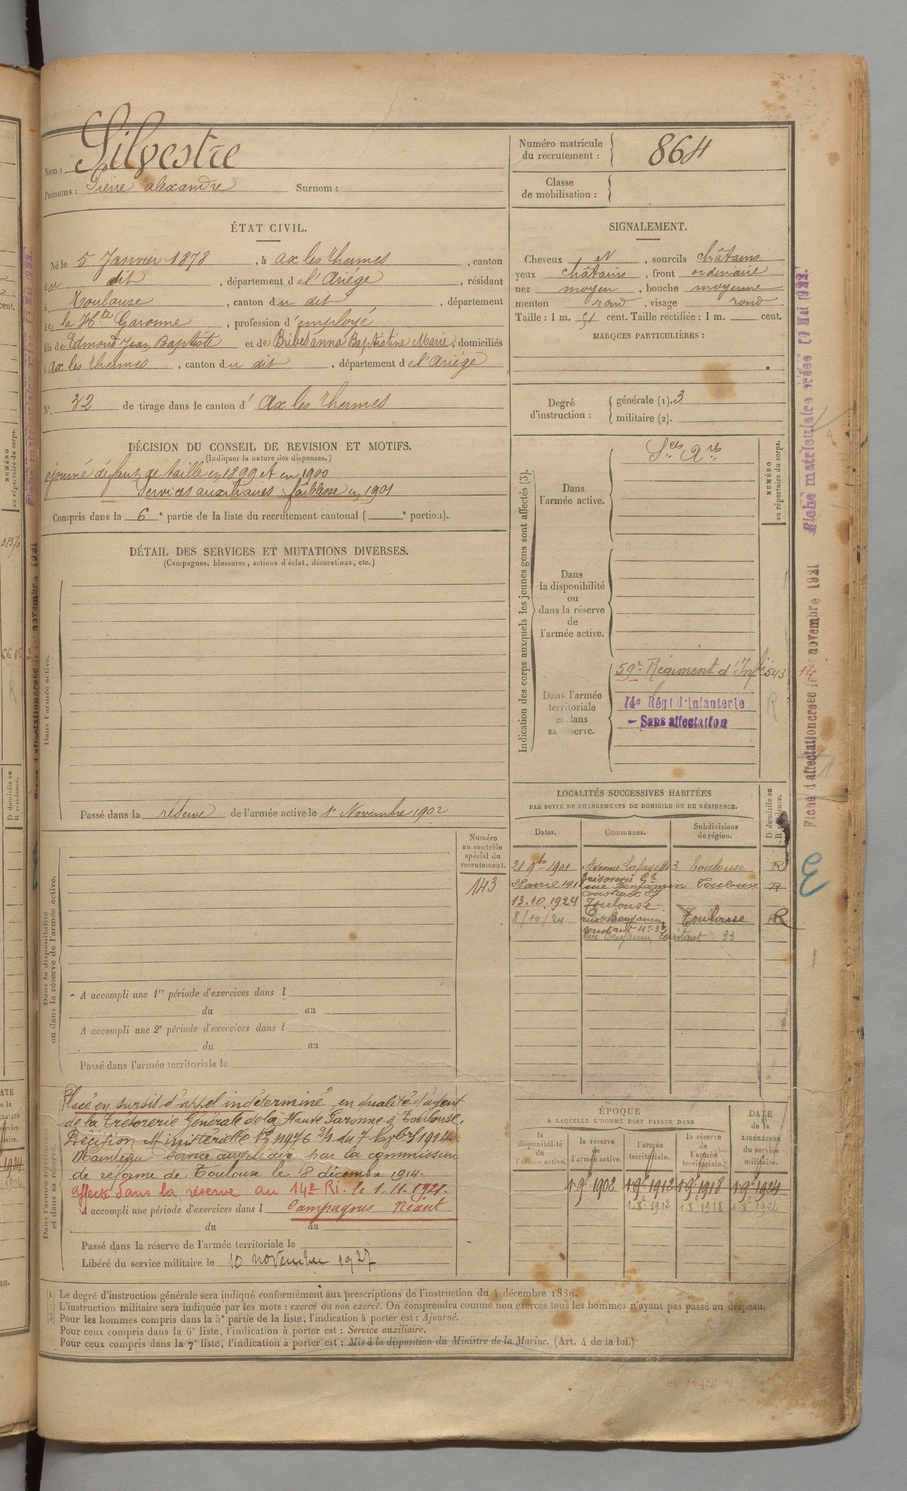 Nom : Silvestre
Prénoms : Pierre alexandre Surnom :
Numéro matricule du recrutement : 864
Classe de mobilisation :
ÉTAT CIVIL.
Né le 5 Janvier 1878, à ax les thermes, canton
du dit, département de l'Ariège, résidant
à Toulouse, canton du dit, département
de la Hte Garonne, profession d'employé
fils de Edmond Jean Baptiste et de Bribes anna Baptistine Marie, domiciliés
à ax les thermes, canton du dit, département de l'Ariège
N° 32 de tirage dans le canton d' ax les thermes
SIGNALEMENT.
Cheveux N, sourcils châtains
yeux châtains, front ordinaire
nez moyen, bouche moyenne
menton rond, visage rond
Taille : 1 m. 51 cent. Taille rectifiée : 1 m. cent.
MARQUES PARTICULIÈRES :
Degré d'instruction : générale (1). 3
militaire (2).
DÉCISION DU CONSEIL DE REVISION ET MOTIFS.
(Indiquer la nature des dispenses.)
ajourné défaut de taille en 1899 et en 1900
Services auxiliaires faiblesse en 1901
Compris dans la 6e partie de la liste du recrutement cantonal ( e portion).
DÉTAIL DES SERVICES ET MUTATIONS DIVERSES.
(Campagnes, blessures, actions d'éclat, décorations, etc.)
Dans l'armée active.
Passé dans la réserve de l'armée active le 1er Novembre 1902
Indication des corps auxquels les jeunes gens sont affectés (3).
NUMÉRO au répertoire du corps.
Dans l'armée active.
Sces Ares
Dans la disponibilité ou dans la réserve de l'armée active.
Dans l'armée territoriale et dans sa réserve.
59e Régiment d'Infie 543
14e Régt d'Infanterie
- Sans affectation
Fiche d'affectation créée le 14 novembre 1921
Fiche matriculaire créée
LOCALITÉS SUCCESSIVES HABITÉES
PAR SUITE DE CHANGEMENTS DE DOMICILE OU DE RÉSIDENCE.
Dates. Communes. Subdivisions de région. D domicile ou R résidence.
21 9bre 1901 Avenue Lafayette 3 Toulouse R
Trésorerie Gle
rue Benjamin Constant Toulouse R
13.10.1924 Toulouse
8/10/24 rue Benjamin Toulouse R
Constant
rue Benjamin Constant 33
Numéro au contrôle spécial du recrutement.
143
Dans la disponibilité ou dans la réserve de l'armée active.
A accompli une 1re période d'exercices dans l
du au
A accompli une 2e période d'exercices dans l
du au
Passé dans l'armée territoriale le
Placé en sursis d'appel indéterminé en qualité d'agent
de la Trésorerie Générale de la Haute Garonne à Toulouse.
Décision Ministérielle
Maintenu Service auxiliaire par la commission
de réforme de Toulouse le 8 décembre 1914.
affecté dans la réserve au 14e RI. le 1.11.1921.
A accompli une période d'exercices dans l Campagnes Néant
du au
Passé dans la réserve de l'armée territoriale le
Libéré du service militaire le 10 novembre 1927
ÉPOQUE
A LAQUELLE L'HOMME DOIT PASSER DANS
la disponibilité de l'armée active.
la réserve de l'armée active.
l'armée territoriale.
la réserve de l'armée territoriale.
DATE de la LIBÉRATION du service militaire.
1.9e 1902 1.9e 1912 1.9e 1918 1.9e 1924
1 8e 1912 1 8e 1918 1 8e 1924
(1) Le degré d'instruction générale sera indiqué conformément aux prescriptions de l'instruction du 4 décembre 1889.
(2) L'instruction militaire sera indiquée par les mots : exercé ou non exercé. On comprendra comme non exercés tous les hommes n'ayant pas passé au drapeau.
(3) Pour les hommes compris dans la 5e partie de la liste, l'indication à porter est : Ajourné.
Pour ceux compris dans la 6e liste, l'indication à porter est : Service auxiliaire.
Pour ceux compris dans la 7e liste, l'indication à porter est : Mis à la disposition du Ministre de la Marine. (Art. 4 de la loi.)